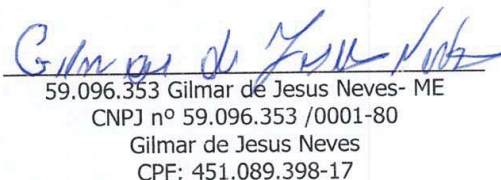 Gilmar de Jesus Neves
59.096.353 Gilmar de Jesus Neves- ME
CNPJ nº 59.096.353 /0001-80
Gilmar de Jesus Neves
CPF: 451.089.398-17